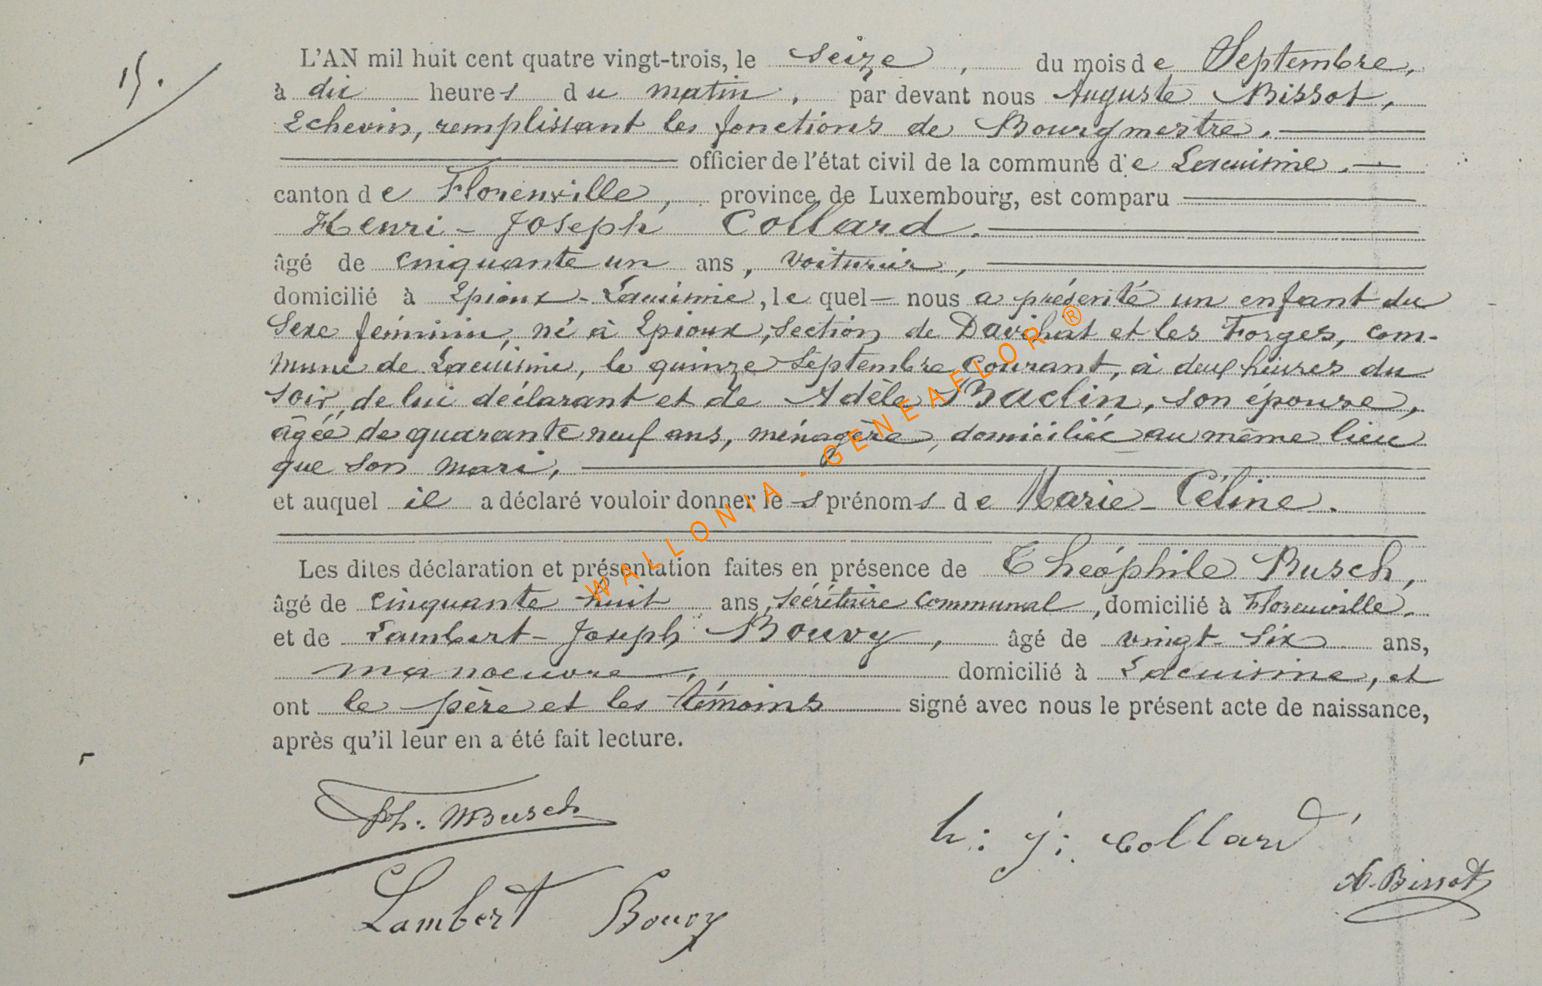 15.
L'AN mil huit cent quatre vingt-trois, le seize, du mois de Septembre,
à dix heures du matin, par devant nous Auguste Bissot,
Echevin, remplissant les fonctions de Bourgmestre.
officier de l'état civil de la commune de Lacuisine.
canton de Florenville, province de Luxembourg, est comparu
Henri-Joseph Collard.
âgé de cinquante un ans, voiturier,
domicilié à Epioux-Lacuisine, lequel nous a présenté un enfant du
sexe féminin, né à Epioux, section de Davihat et les Forges, com-
mune de Lacuisine, le quinze Septembre courant, à deux heures du
soir, de lui déclarant et de Adèle Baclin, son épouse,
âgée de quarante neuf ans, ménagère, domiciliée au même lieu
que son mari,
et auquel il a déclaré vouloir donner les prénoms de Marie-Céline.
Les dites déclaration et présentation faites en présence de Théophile Busch,
âgé de cinquante huit ans, secrétaire communal, domicilié à Florenville,
et de Lambert-Joseph Bouvy, âgé de vingt-six ans,
manoeuvre, domicilié à Lacuisine, et
ont le père et les témoins signé avec nous le présent acte de naissance,
après qu'il leur en a été fait lecture.
Th. Busch
h: j: collard
A. Bissot
Lambert Bouvy
WALLONIA - GENEAFLOR ®